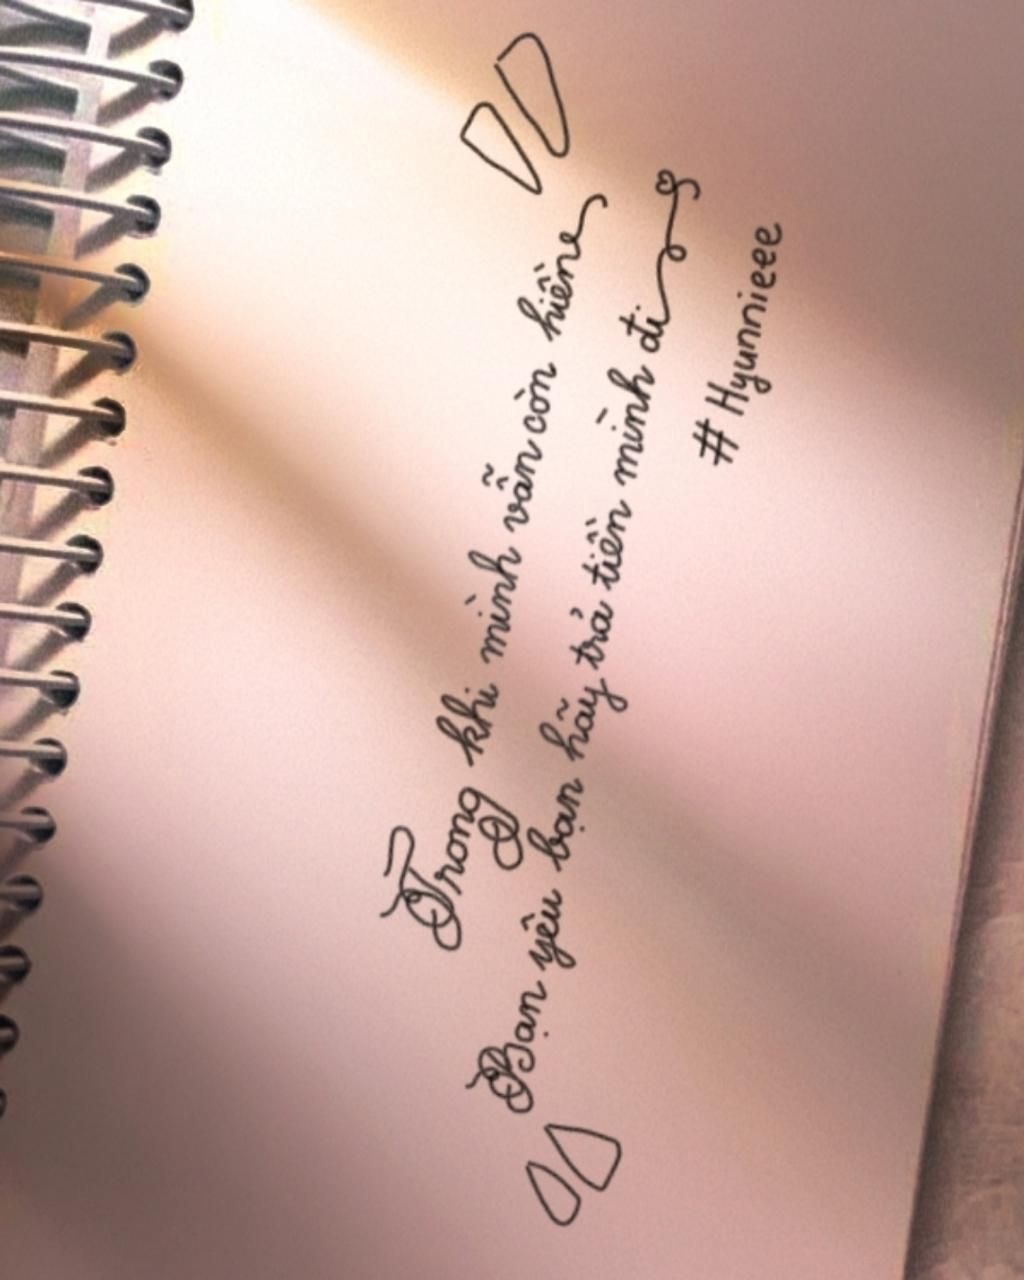 Trong khi mình vẫn còn hiền
Bạn yêu bạn hãy trả tiền mình đi
#Hyunnieee